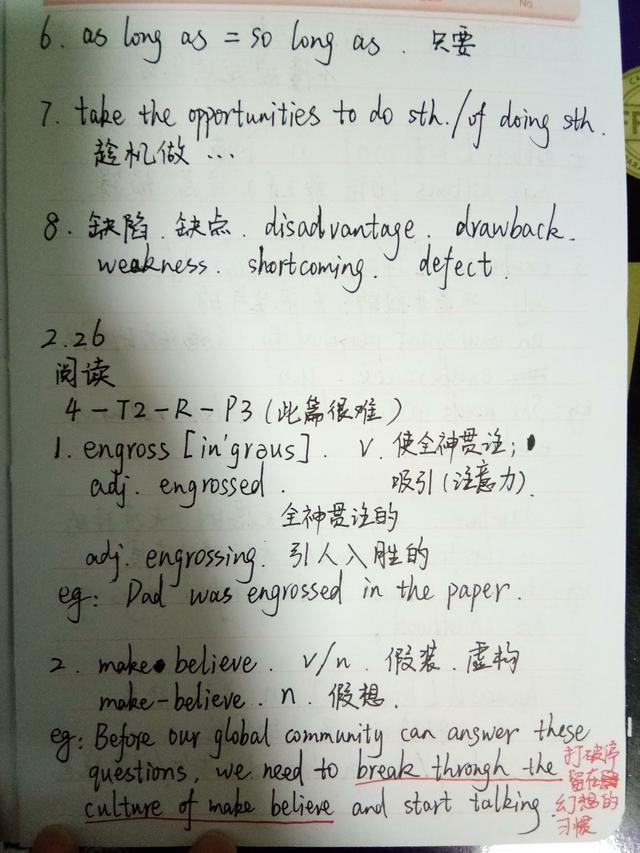 No.
6. as long as = so long as. 只要
7. take the opportunities to do sth. / of doing sth.
趁机做 …
8. 缺陷. 缺点. disadvantage. drawback.
weakness. shortcoming. defect.
2.26
阅读
4-T2-R-P3 (此篇很难)
1. engross [in'grəus]. v. 使全神贯注;
adj. engrossed. 吸引(注意力).
全神贯注的
adj. engrossing. 引人入胜的
eg: Dad was engrossed in the paper.
2. make believe. v/n. 假装. 虚构
make-believe. n. 假想.
eg: Before our global community can answer these
questions, we need to break through the
culture of make believe and start talking.
打破停
留在
幻想的
习惯